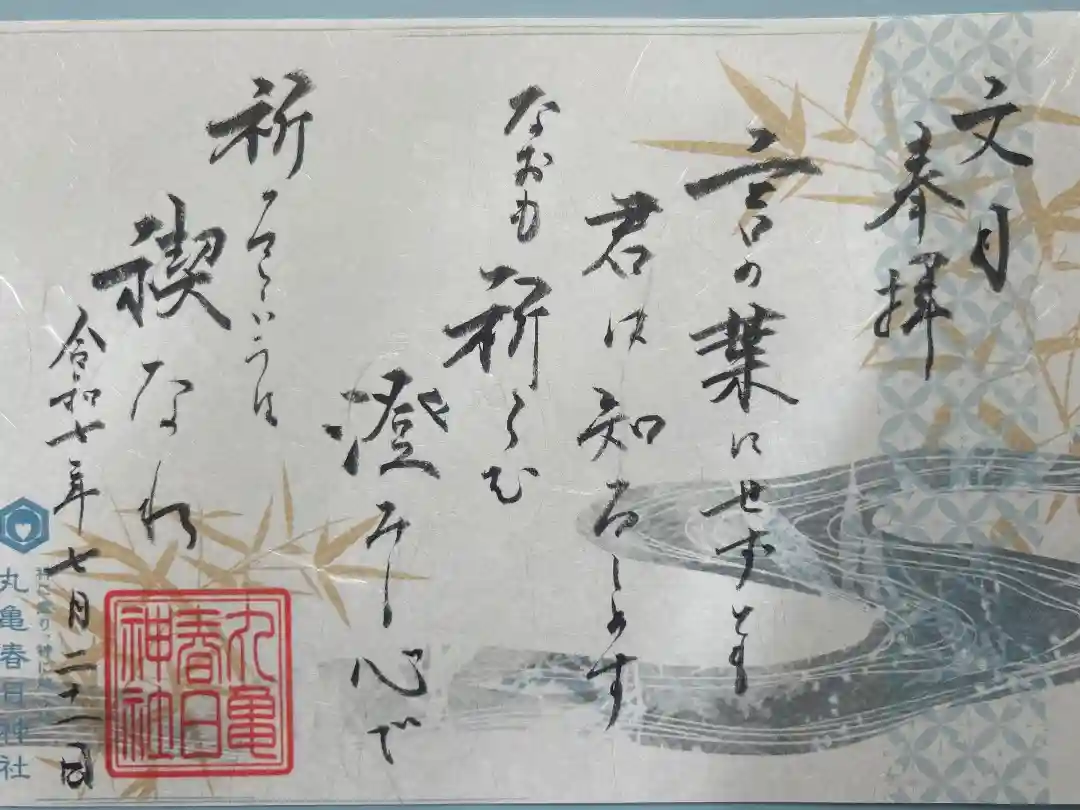 文月
奉拝
言の葉にせずとも
君は知ろしめす
なおも祈らむ
澄みし心で
祈 いうは
禊なれ
令和七年七月二十一日
丸亀
春日
神社
丸亀春日神社